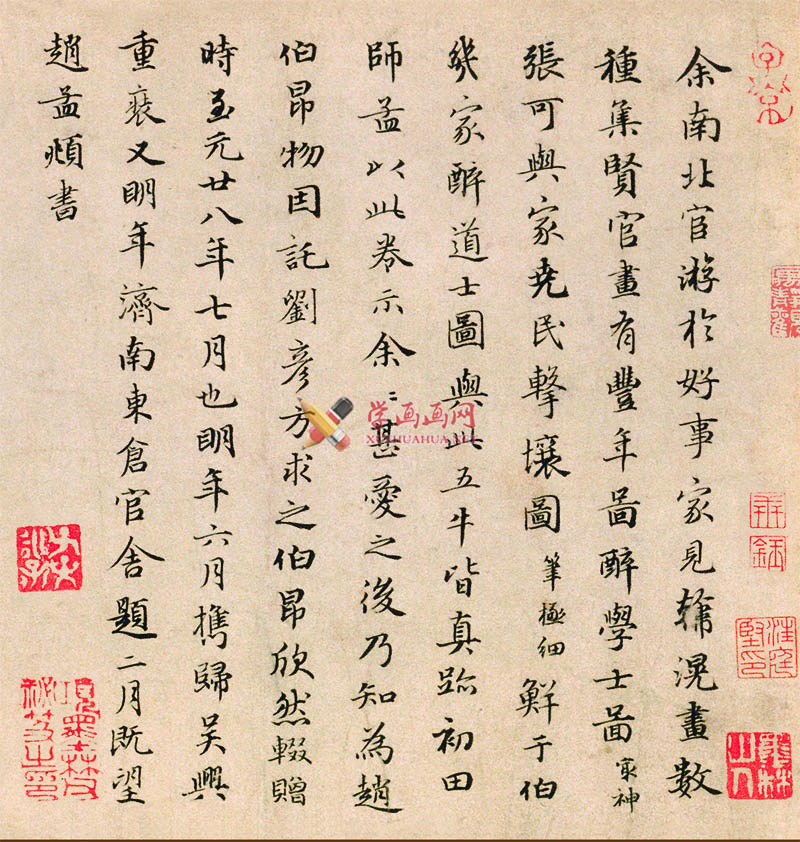 余南北官游於好事家見韩滉畫數
種集賢官畫有豐年啚醉學士啚最神
張可與家尭民擊壤圖筆極细鮮于伯
幾家醉道士圖與此五牛皆真跡初田
師孟以此卷示余〻甚愛之後乃知為趙
伯昂物因託劉彦方求之伯昂欣然輟贈
時至元廿八年七月也明年六月攜歸吴興
重裝又明年濟南東倉官舍題二月既望
趙孟頫書
学画画网
XUEHUAHUA.NET
子京
項墨林父
秘笈之印
墨林
山人